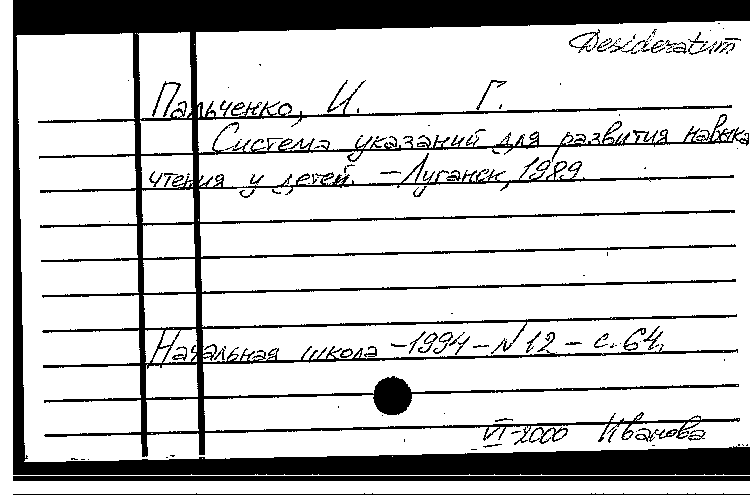 Desideratum
Пальченко, И. Г.
Система указаний для развития навыка
чтения у детей. – Луганск, 1989.
Начальная школа – 1994 – N 12 – с. 64.
VI-2000 Иванова